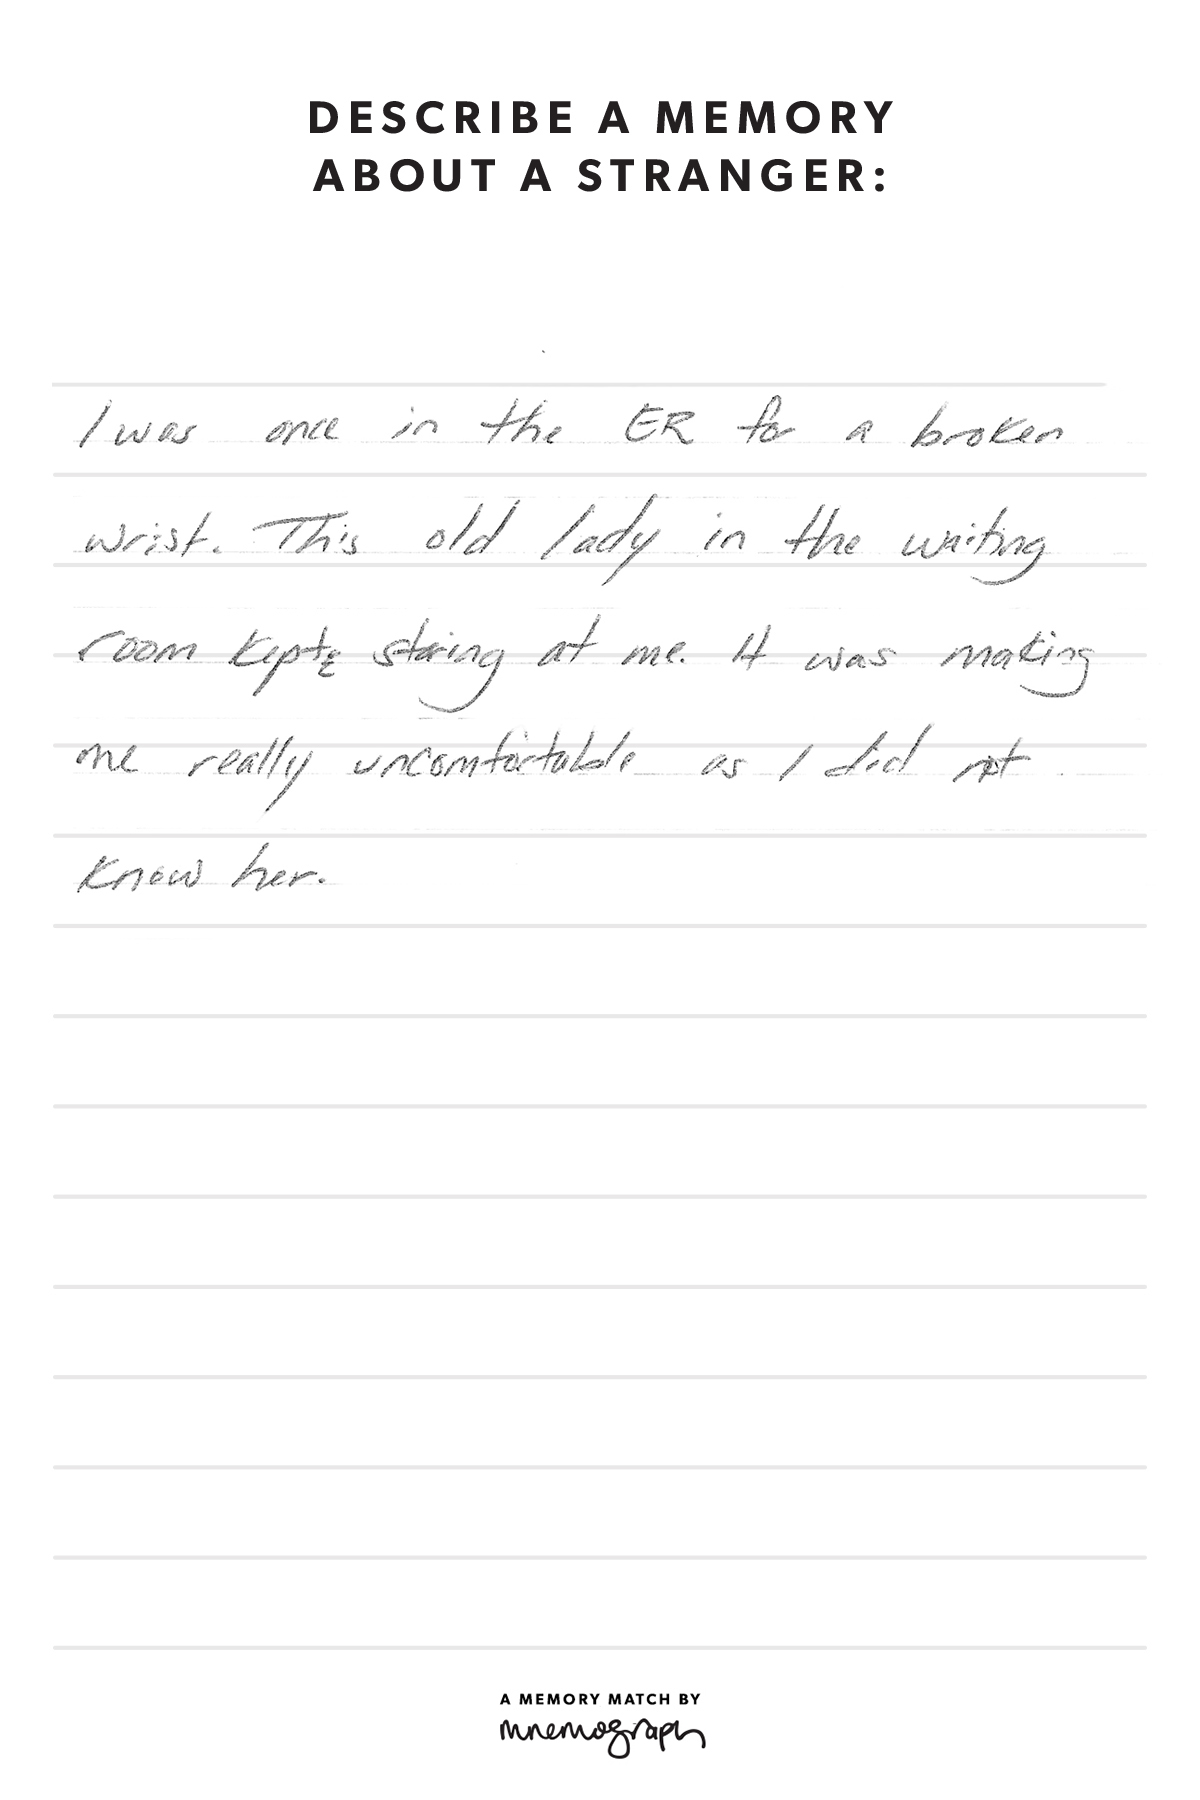 DESCRIBE A MEMORY
ABOUT A STRANGER:
I was once in the ER for a broken
wrist. This old lady in the waiting
room kept staring at me. It was making
me really uncomfortable as I did not
know her.
A MEMORY MATCH BY
mnemograph